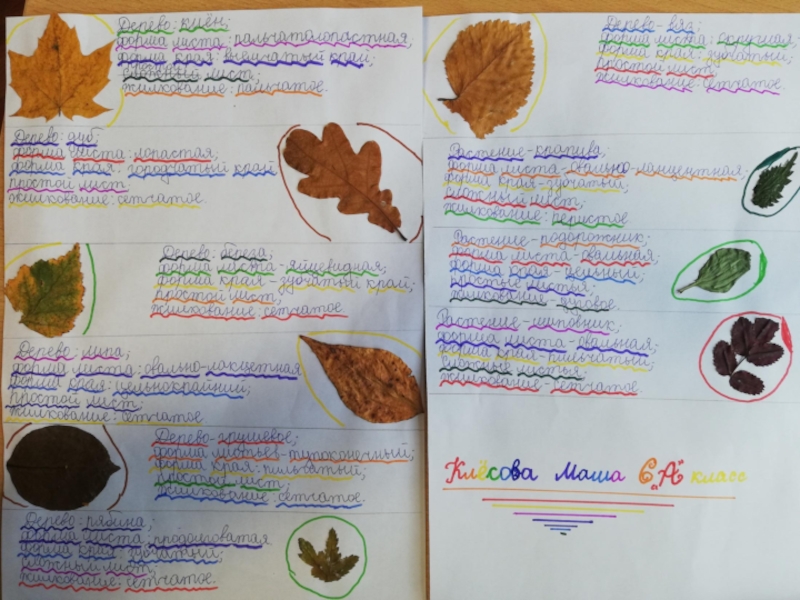 Дерево: клён;
форма листа: пальчатолопастная,
форма края: выемчатый край;
сложный лист;
жилкование: пальчатое.
Дерево: дуб;
форма листа: лопастая;
форма края: городчатый край
простой лист;
жилкование: сетчатое.
Дерево: береза;
форма листа - яйцевидная;
форма края - зубчатый край;
простой лист;
жилкование: сетчатое
Дерево: липа;
форма листа: овально-ланцетная
форма края: цельнокрайний;
простой лист;
жилкование: сетчатое.
Дерево - грушевое;
форма листьев - тупоконечный;
форма края: пильчатый;
простой лист;
жилкование: сетчатое.
Дерево: рябина;
форма листа: продолговатая
форма края: зубчатый;
сложный лист;
жилкование: сетчатое.
Дерево - вяз;
форма листа: округлая;
форма края: зубчатый;
простой лист;
жилкование - сетчатое.
Растение - крапива;
форма листа - овально-ланцентная;
форма края - зубчатый;
сложный лист;
жилкование: перистое
Растение - подорожник;
форма листа - овальная;
форма края - цельный;
простые листья;
жилкование - дуговое.
Растение - шиповник;
форма листа - овальная;
форма края - пильчатый;
сложные листья;
жилкование - сетчатое.
Клёсова Маша 6 „А" класс